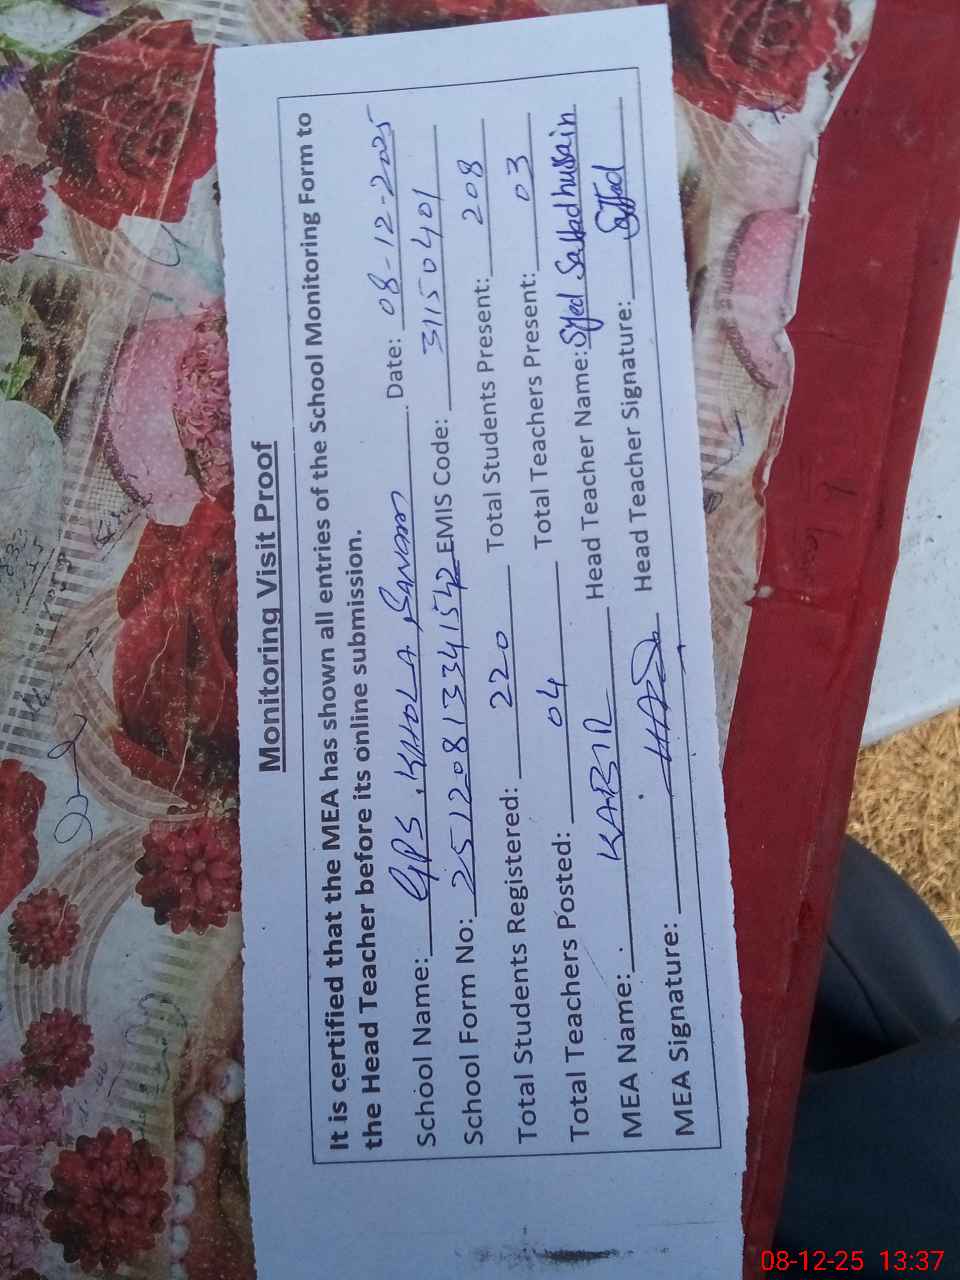 Monitoring Visit Proof
It is certified that the MEA has shown all entries of the School Monitoring Form to
the Head Teacher before its online submission.
School Name: GPS KHOLA Date: 08-12-2025
School Form No: 25120813341542 EMIS Code: 31150401
Total Students Registered: 220 Total Students Present: 208
Total Teachers Posted: 04 Total Teachers Present: 03
MEA Name: KABIR Head Teacher Name: Syed Sajjad hussain
MEA Signature: Head Teacher Signature: Sajjad
08-12-25 13:37